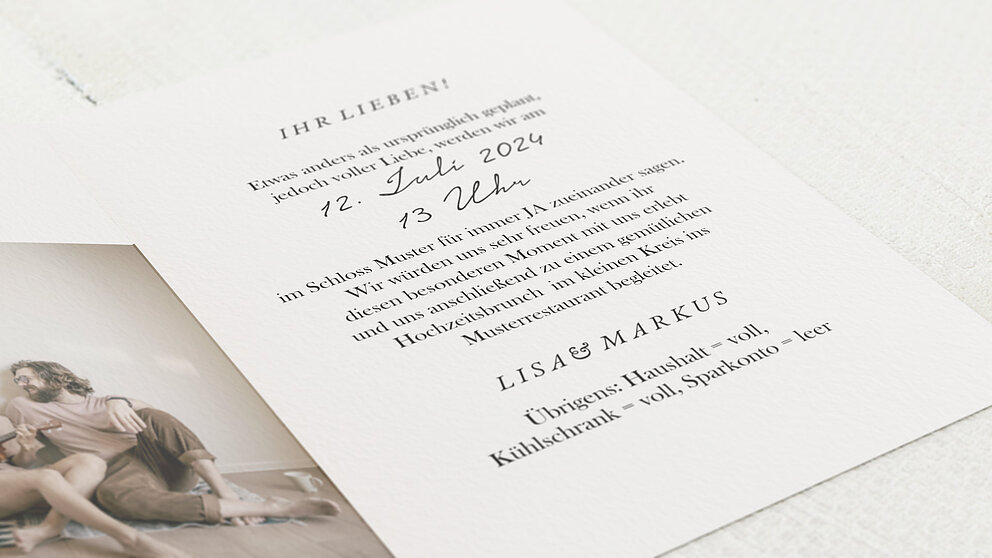 IHR LIEBEN!
Etwas anders als ursprünglich geplant,
jedoch voller Liebe, werden wir am
12. Juli 2024
13 Uhr
im Schloss Muster für immer JA zueinander sagen.
Wir würden uns sehr freuen, wenn ihr
diesen besonderen Moment mit uns erlebt
und uns anschließend zu einem gemütlichen
Hochzeitsbrunch im kleinen Kreis ins
Musterrestaurant begleitet.
LISA & MARKUS
Übrigens: Haushalt = voll,
Kühlschrank = voll, Sparkonto = leer